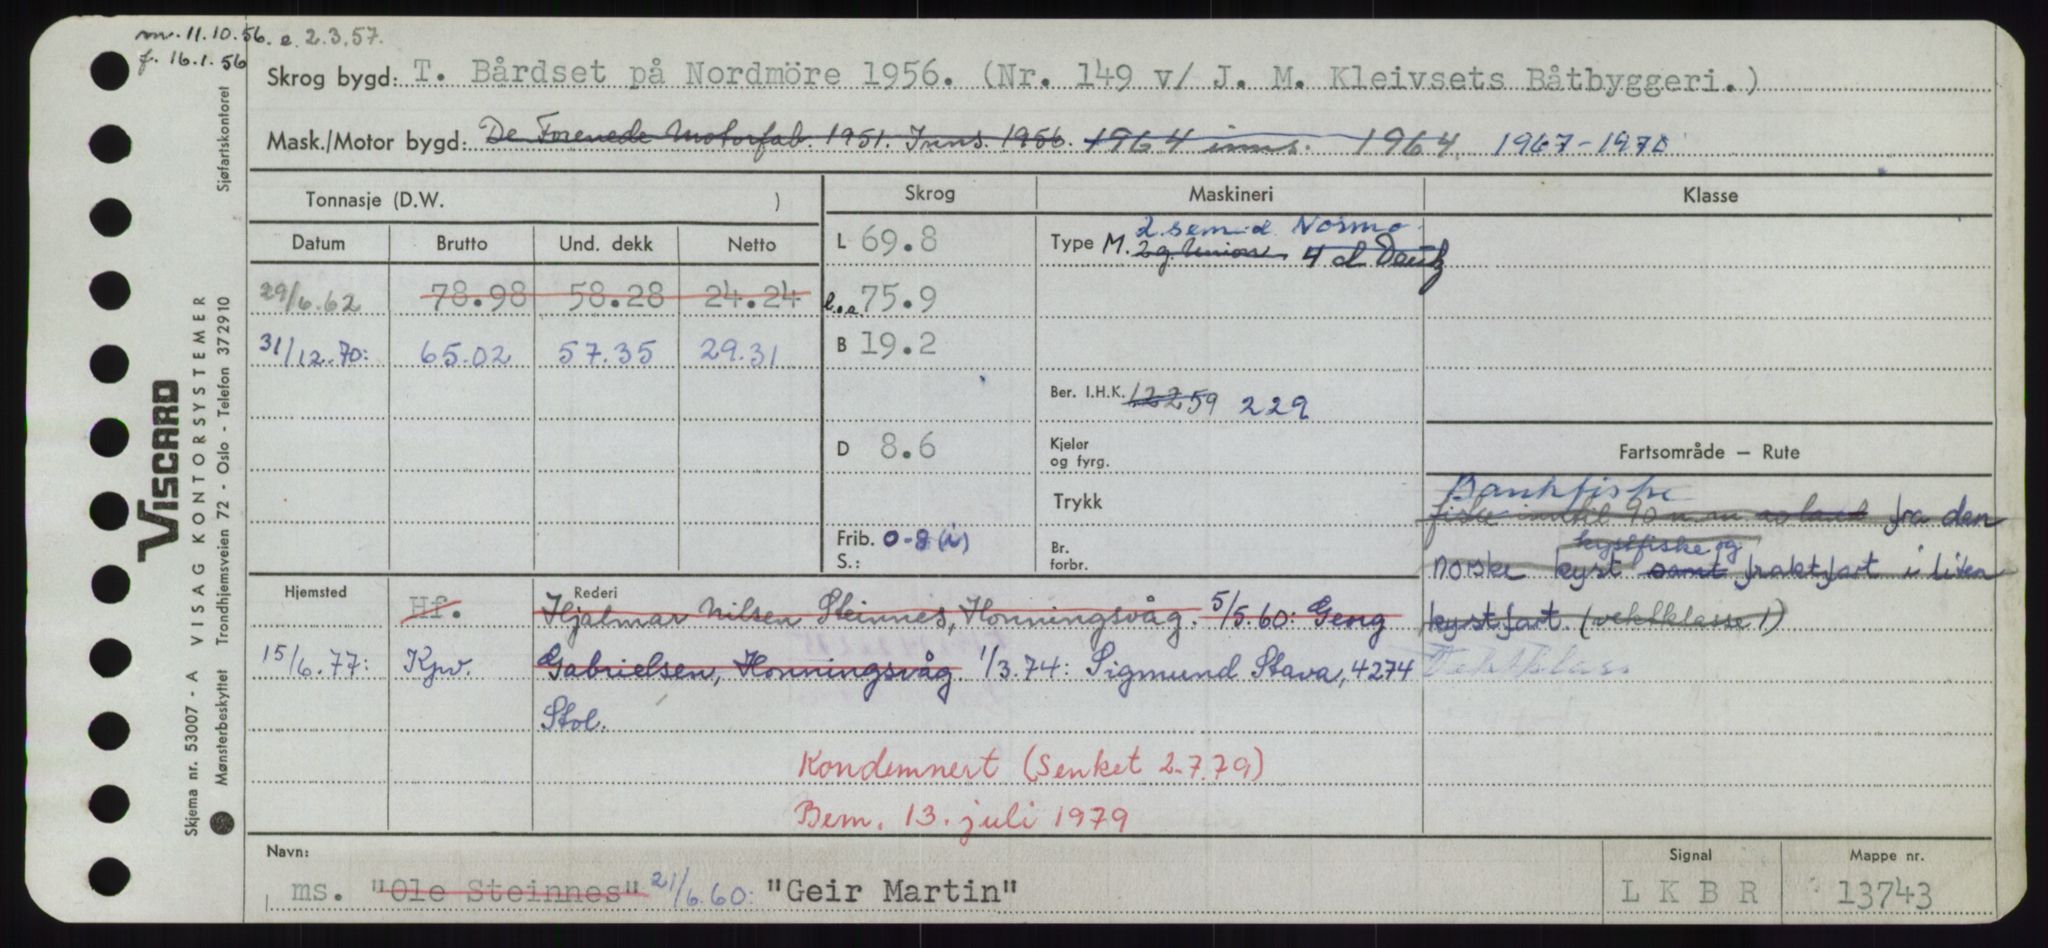 m. 11.10.56. e. 2.3.57.
f. 16.1.56
Skrog bygd: T. Bårdset på Nordmöre 1956. (Nr. 149 v/ J. M. Kleivsets Båtbyggeri.)
Mask./Motor bygd: De Forenede Motorfab. 1951. Inns. 1956. 1964 inns. 1964. 1967-1970
Tonnasje (D.W. )
Skrog
Maskineri
Klasse
Datum Brutto Und. dekk Netto
29/6.62 78.98 58.28 24.24
31/12.70: 65.02 57.35 29.31
L 69.8
l.o.a. 75.9
B 19.2
D 8.6
Frib. 0-8 (i)
S.:
2 sem-d. Normo
Type M. 2 g. Union 4 d Deutz
Ber. I.H.K. 122 59 229
Kjeler
og fyrg.
Trykk
Br.
forbr.
Fartsområde — Rute
Bankfiske
fiske inntil 90 n.m. av land fra den
kystfiske og
norske kyst samt fraktfart i liten
kystfart. (vektklasse 1)
Vektklass
Hjemsted
Rederi
Hf. Hjalmar Nilsen Steinnes, Honningsvåg. 5/5.60: Georg
15/6.77: Kpv. Gabrielsen, Honningsvåg. 1/3.74: Sigmund Stava, 4274
Stol.
Kondemnert (Senket 2.7.79)
Bem. 13. juli 1979
Navn:
ms. "Ole Steinnes" 21/6.60: "Geir Martin"
Signal
L K B R
Mappe nr.
13743
VISCARD
Skjema nr. 53007 - A VISAG KONTORSYSTEMER
Mønsterbeskyttet Trondhjemsveien 72 - Oslo - Telefon 372910
Sjøfartskontoret